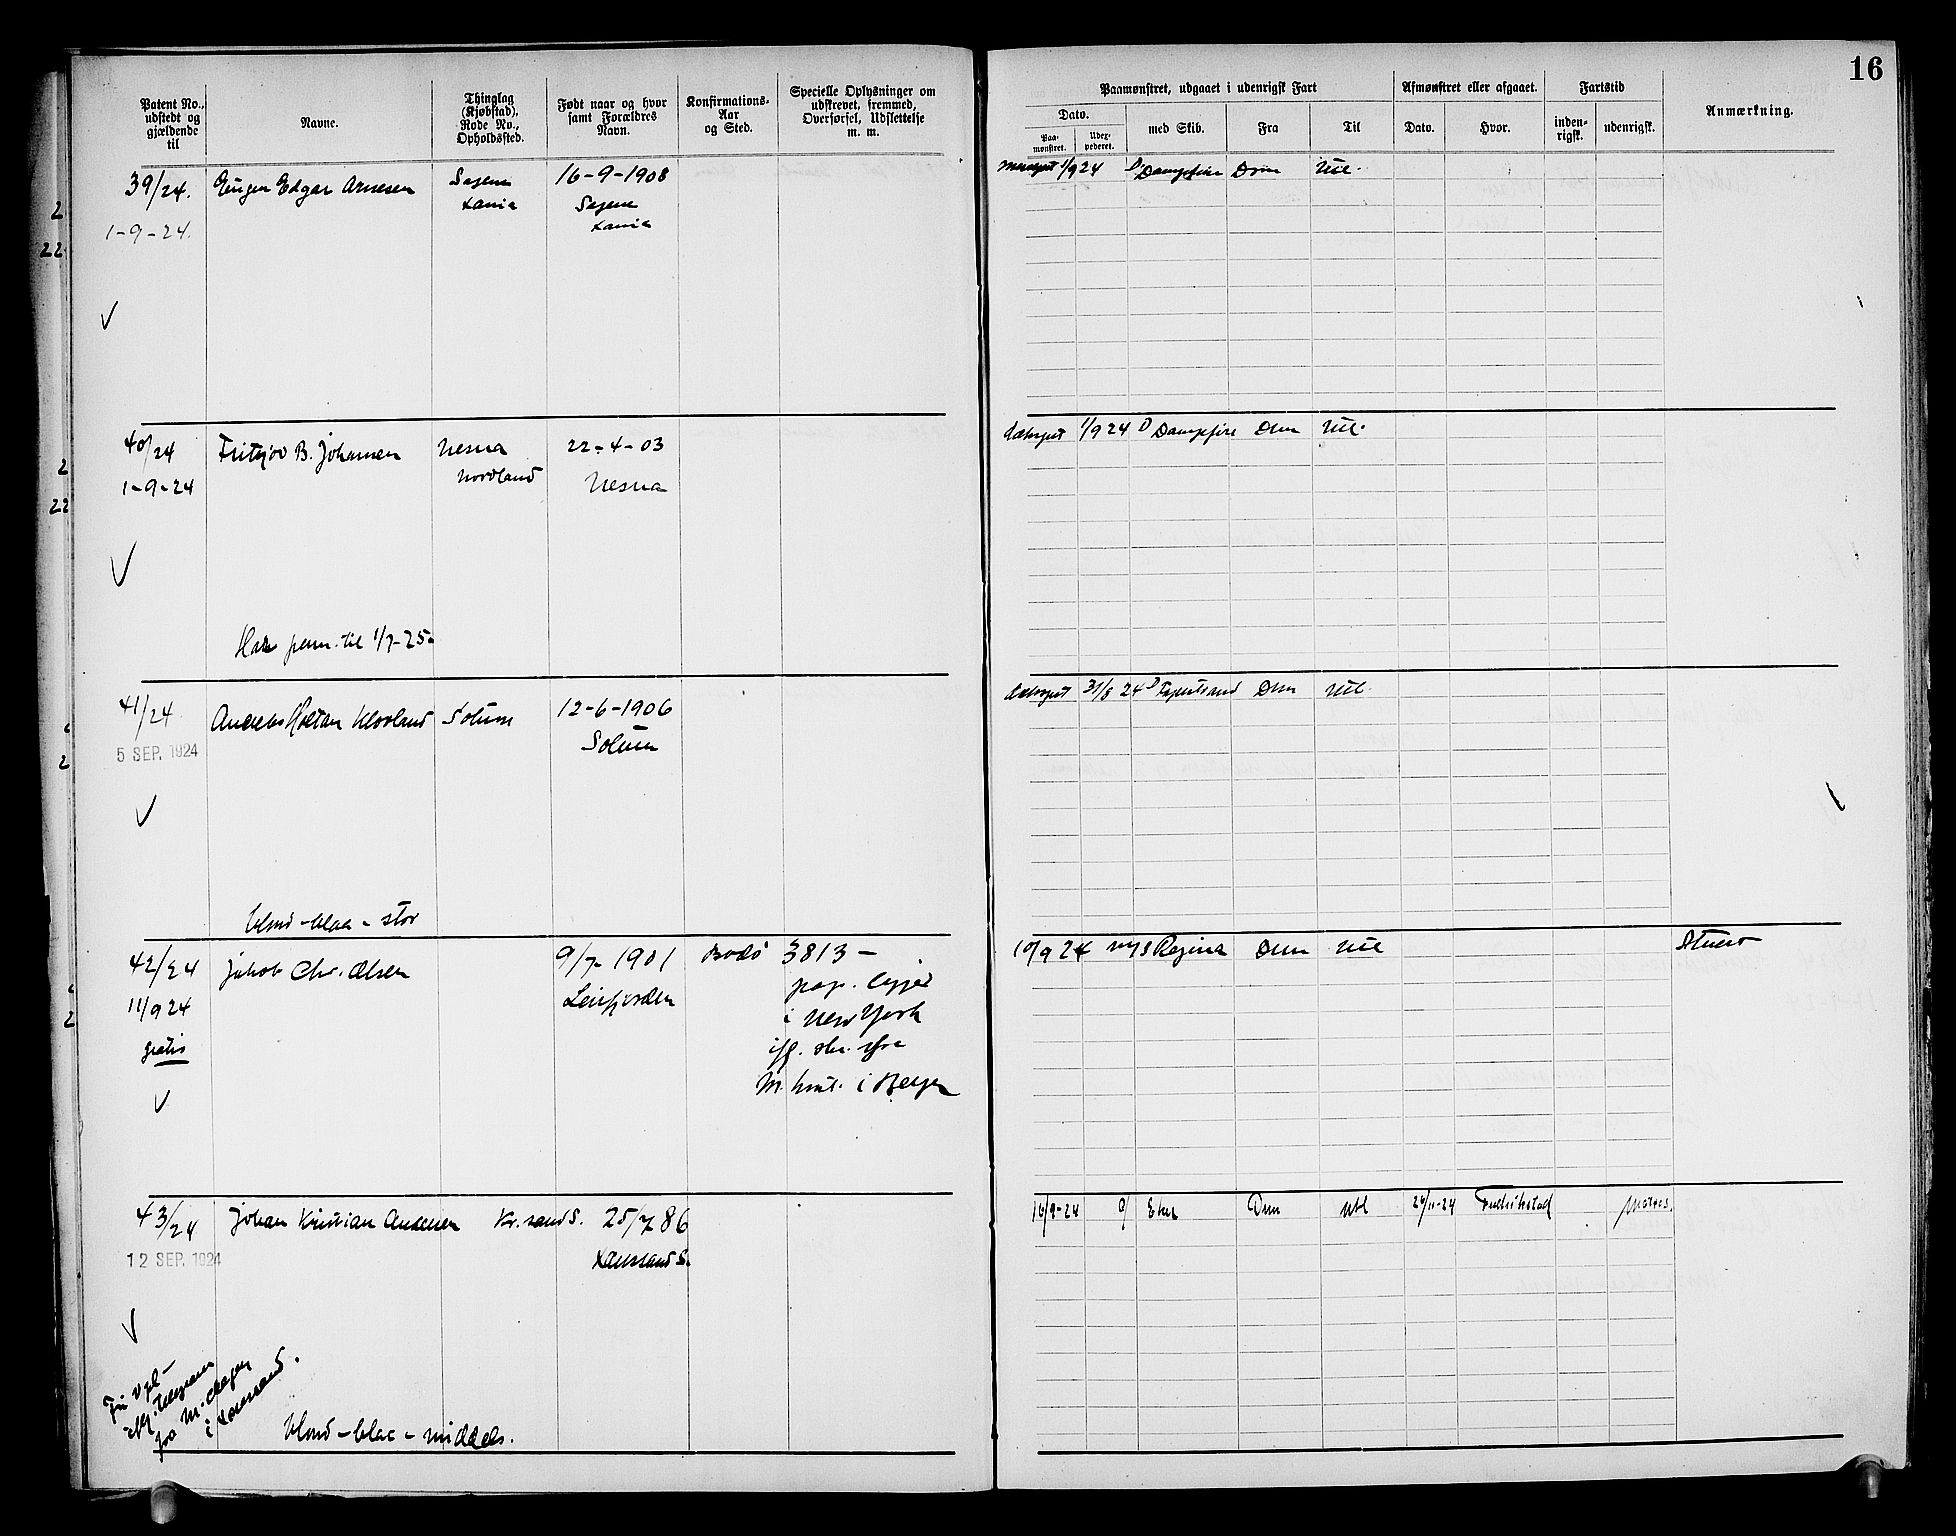 16
Patent No., udstedt og gjældende til
Navne.
Thinglag (Kjøbstad), Rode No., Opholdssted.
Født naar og hvor samt Forældres Navn.
Konfirmations-Aar og Sted.
Specielle Oplysninger om udskrevet, fremmed, Overførsel, Udslettelse m. m.
Paamønstret, udgaaet i udenrigsk Fart
Dato.
Paa-mønstret.
med Skib.
Fra
Til
Afmønstret eller afgaaet.
Dato.
Hvor.
Fartstid
inden-rigsk.
udenrigsk.
Anmærkning.
39/24. Edgar Arnesen Sagene 16-9-1908 1/9 24 D Dampfire Dm Utl.
1-9-24. Sagene
2
22
40/24 Fritjov B. Johansen Nesna 22-4-03 dæksgut 1/9 24 D Dampfire Dm Utl.
1-9-24 Nordland Nesna
2
22
Har perm. til 1/7-25
41/24 Holtan Solum 12-6-1906 dæksgut 31/8 24 D Dm Utl.
5 SEP. 1924 Solum
2
blond-blaa-stor
42/24 Jakob Chr. Olsen 9/7-1901 Bodø 3813- 10/9 24 M/S Regina Dm Utl Stuert
11/9 24 Leirfjorden pap. ligger
gratis i New York
2
ifg. skr. fra
M. knt. i Bergen
43/24 Johan Kristian Andersen Kr.sand S. 25/7 86 16/9-24 Dm Utl 26/11-24 Fredrikstad Matros.
12 SEP. 1924 S.
fra M.
i
blond-blaa-middels.